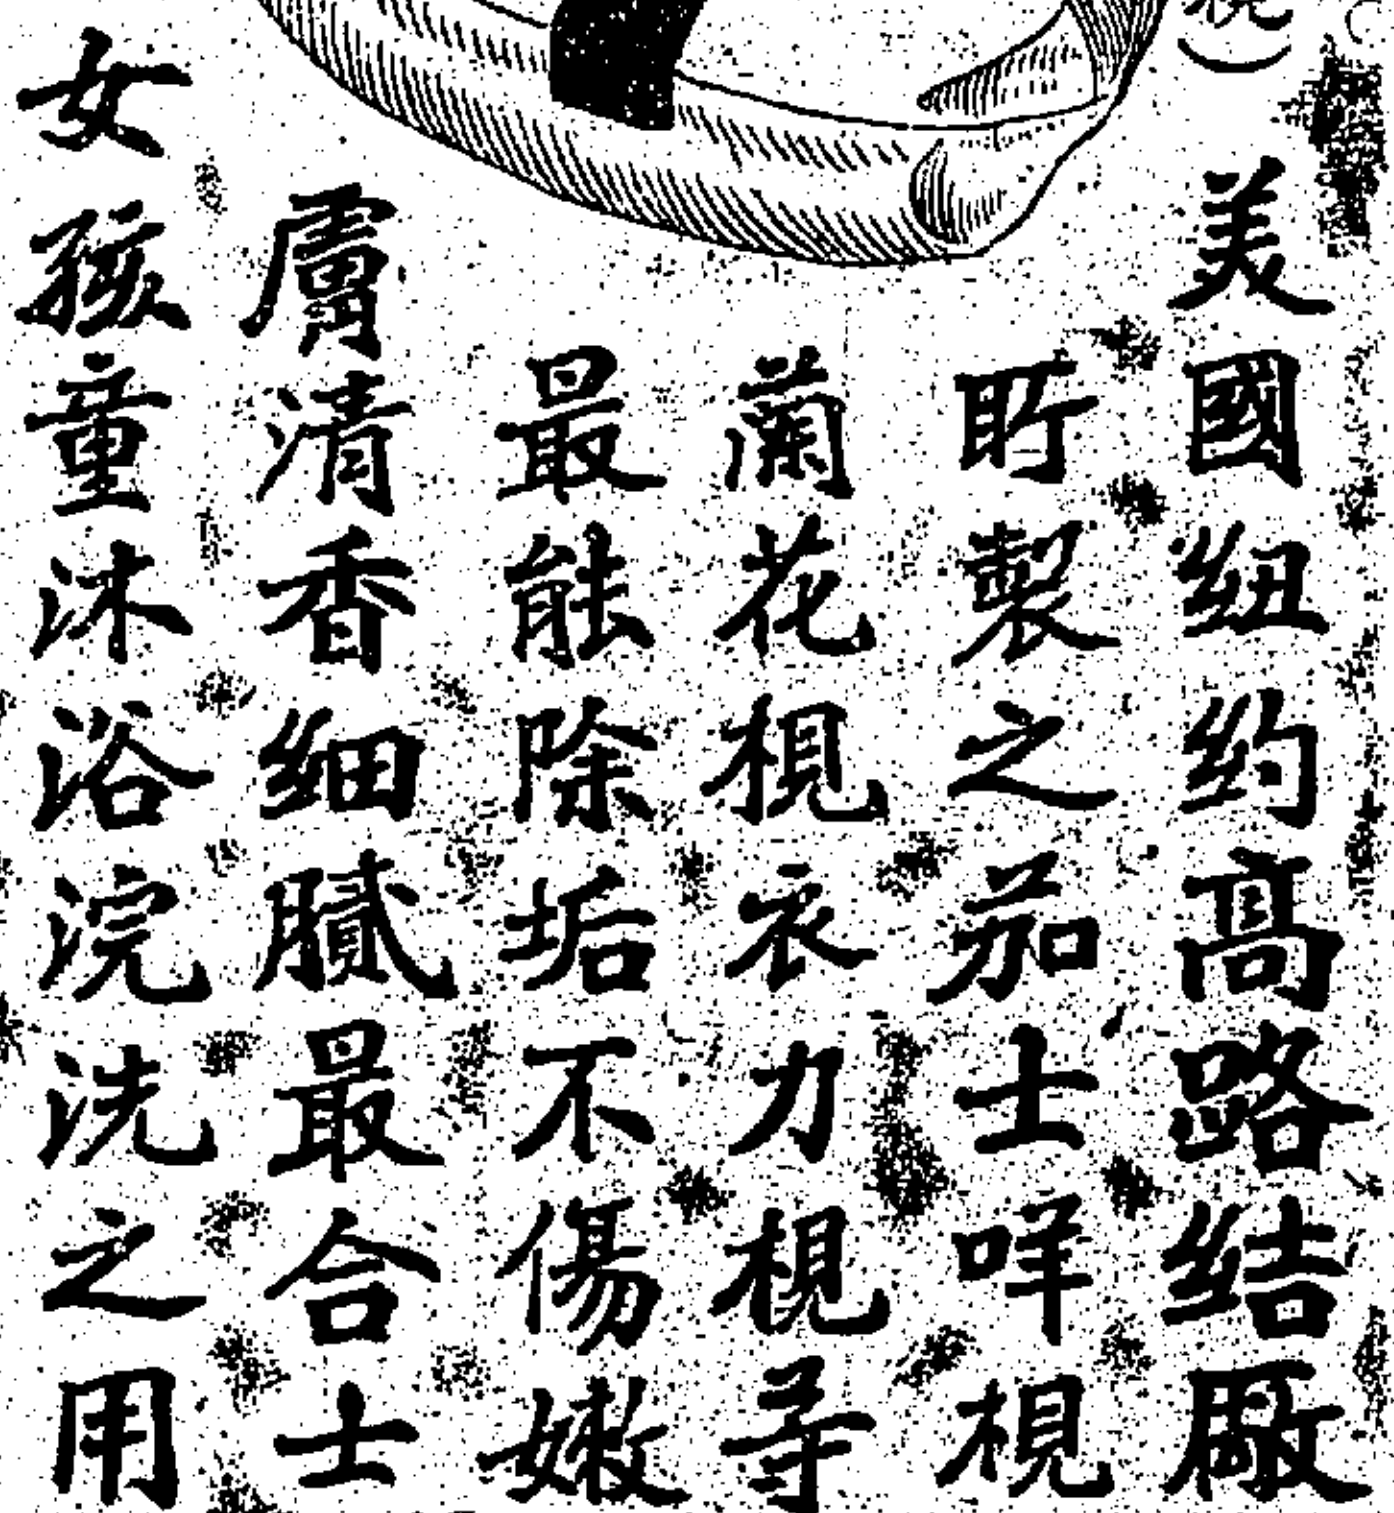 美國纽约高路结厰
所製之茄士咩梘
蘭花梘衣力梘等
最能除垢不傷嫩
膚清香细膩最合士
女孩童沐浴浣洗之用